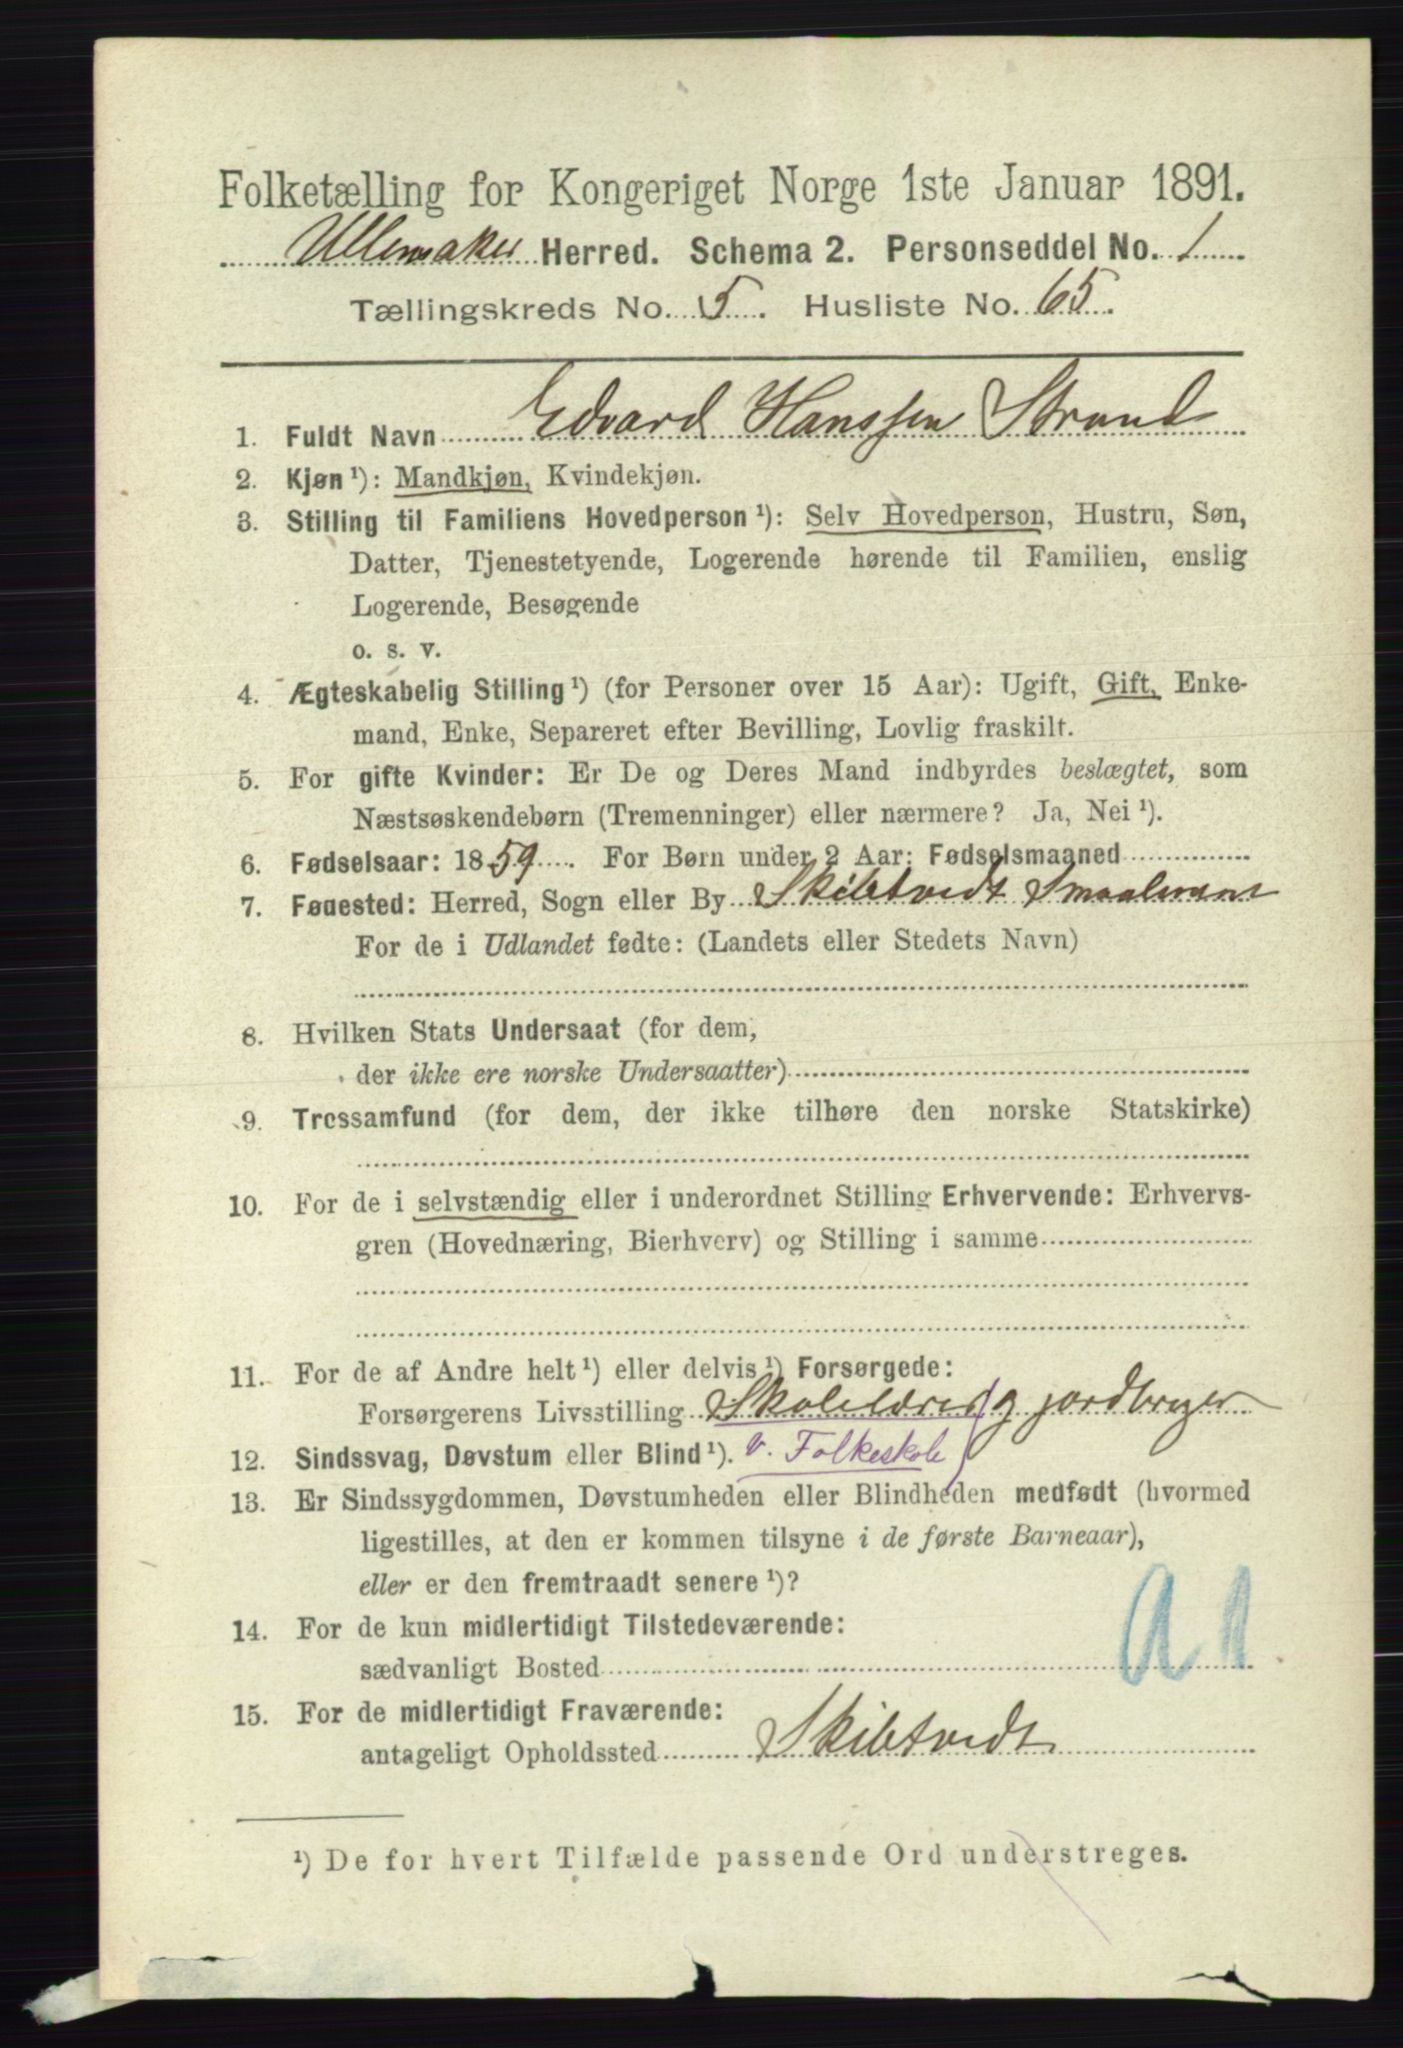 Folketælling for Kongeriget Norge 1ste Januar 1891.
Ullensaker Herred. Schema 2. Personseddel No. 1
Tællingskreds No. 5. Husliste No. 65.
1. Fuldt Navn Edvard Hanssen Strand
2. Kjøn ¹): Mandkjøn, Kvindekjøn.
3. Stilling til Familiens Hovedperson ¹): Selv Hovedperson, Hustru, Søn,
Datter, Tjenestetyende, Logerende hørende til Familien, enslig
Logerende, Besøgende
o. s. v.
4. Ægteskabelig Stilling ¹) (for Personer over 15 Aar): Ugift, Gift, Enke-
mand, Enke, Separeret efter Bevilling, Lovlig fraskilt.
5. For gifte Kvinder: Er De og Deres Mand indbyrdes beslægtet, som
Næstsøskendebørn (Tremenninger) eller nærmere? Ja, Nei ¹).
6. Fødselsaar: 1859. For Børn under 2 Aar: Fødselsmaaned
7. Føuested: Herred, Sogn eller By Skibtvedt Smaalenene
For de i Udlandet fødte: (Landets eller Stedets Navn)
8. Hvilken Stats Undersaat (for dem,
der ikke ere norske Undersaatter)
9. Trossamfund (for dem, der ikke tilhøre den norske Statskirke)
10. For de i selvstændig eller i underordnet Stilling Erhvervende: Erhvervs-
gren (Hovednæring, Bierhverv) og Stilling i samme
11. For de af Andre helt ¹) eller delvis ¹) Forsørgede:
Forsørgerens Livsstilling Skolelærer og jordbruger
12. Sindssvag, Døvstum eller Blind ¹). v. Folkeskole
13. Er Sindssygdommen, Døvstumheden eller Blindheden medfødt (hvormed
ligestilles, at den er kommen tilsyne i de første Barneaar),
eller er den fremtraadt senere ¹)?
14. For de kun midlertidigt Tilstedeværende:
sædvanligt Bosted a 1
15. For de midlertidigt Fraværende:
antageligt Opholdssted Skibtvedt
¹) De for hvert Tilfælde passende Ord understreges.